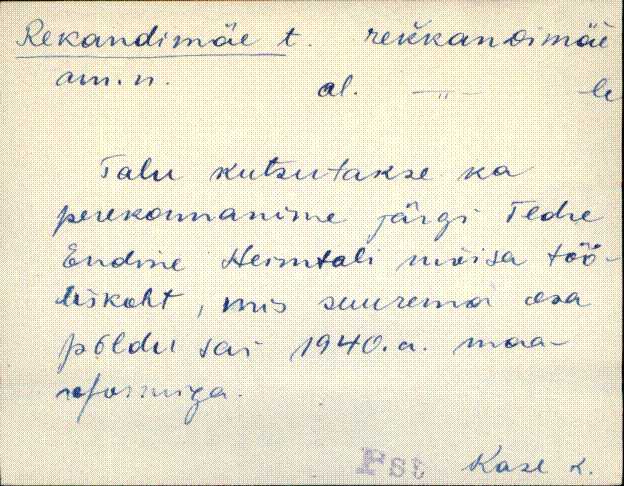 Rekandimäe t. rekkandimäe
am.n. al. —"— le
Talu kutsutakse ka
perekonnanime järgi Tedre
Endine Heimtali mõisa töö-
liskoht, mis suurema osa
põldu sai 1940.a. maa-
reformiga.
Pst Kase k.